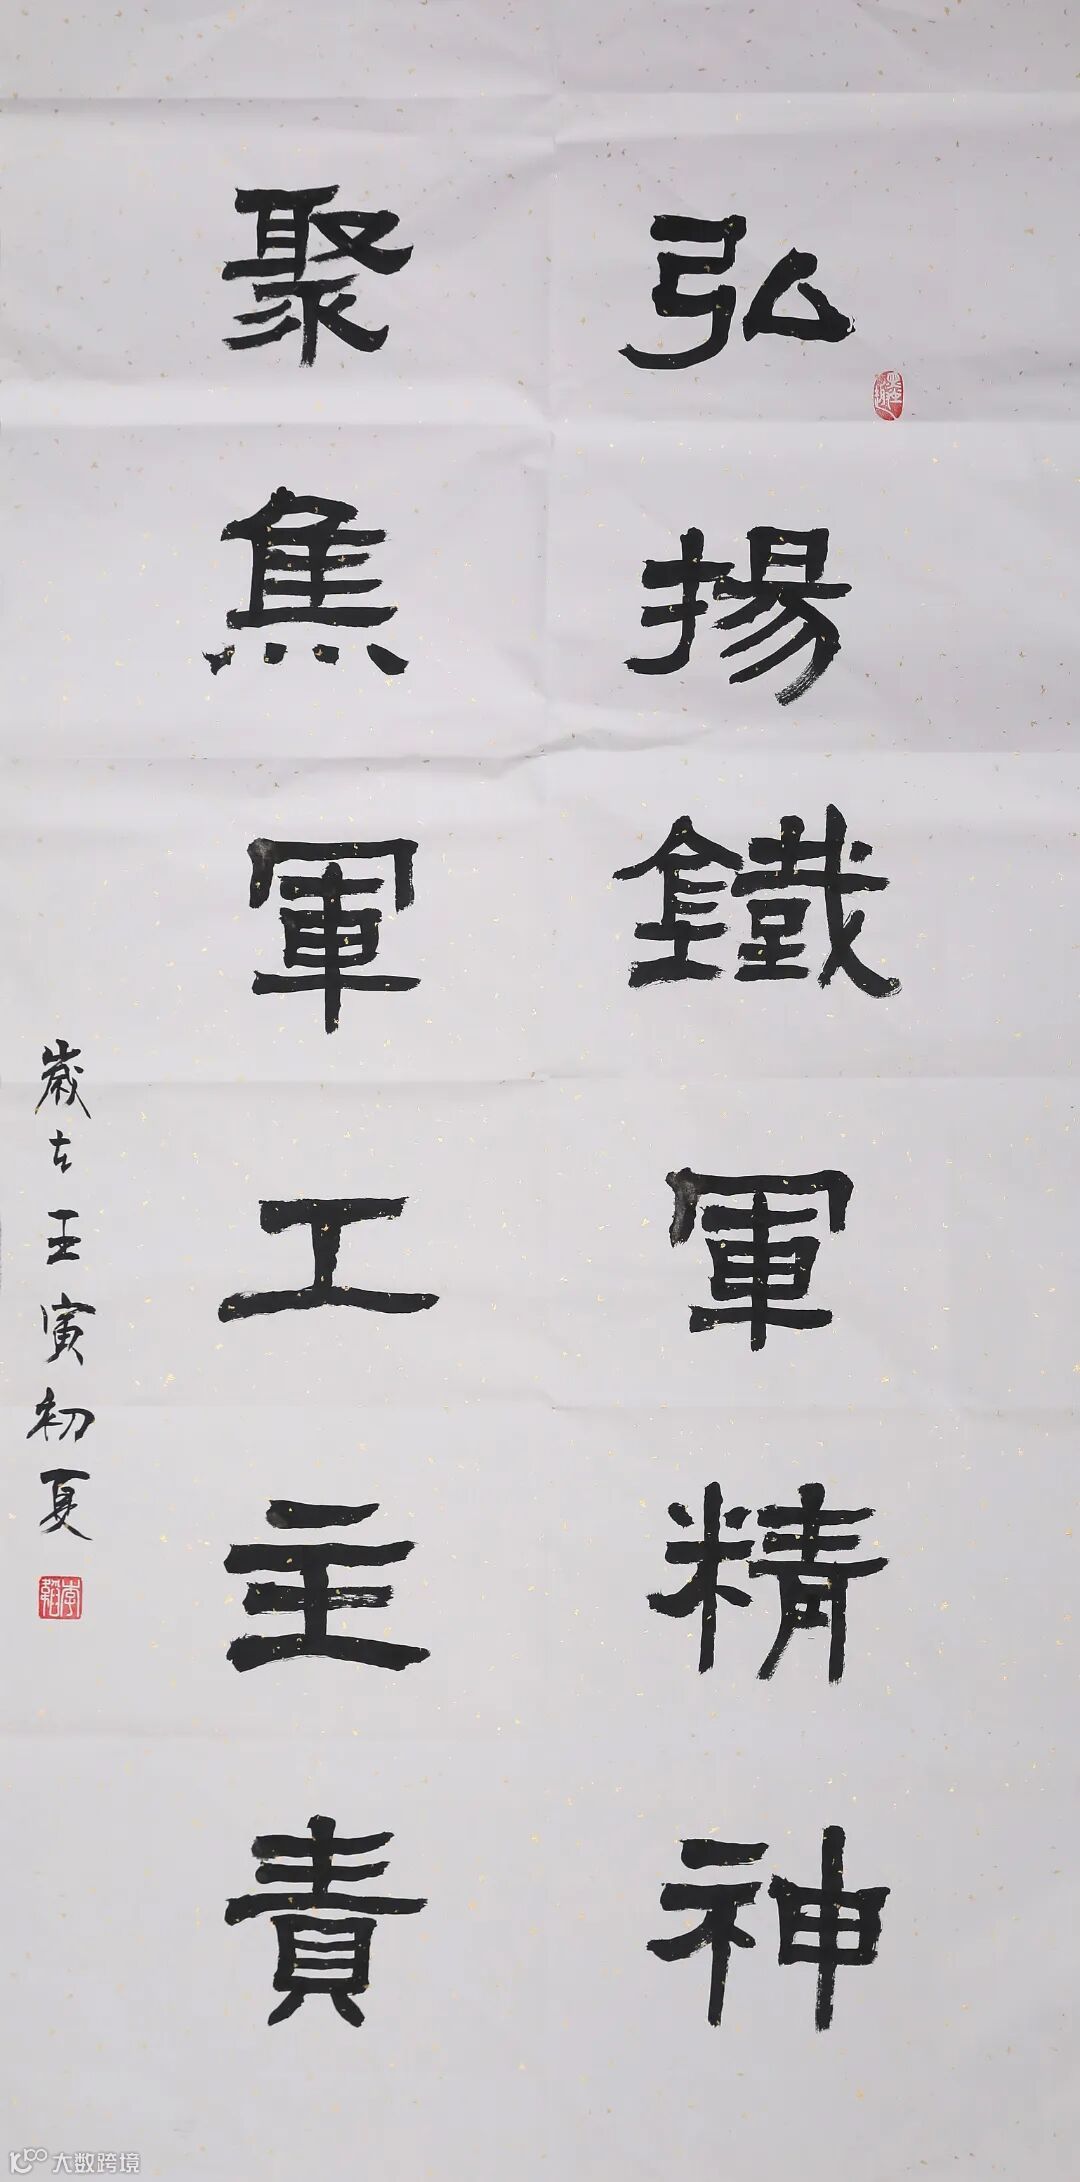 弘揚鐵軍精神
聚焦軍工主責
歲在壬寅初夏
大数跨境